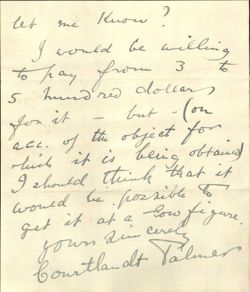 let me know?
I would be willing
to pay from 3 to
5 hundred dollars
for it – but – (on
acc. of the object for
which it is being obtained)
I should think that it
would be possible to
get it at a low figure.
yours sincerely
Courtlandt Palmer